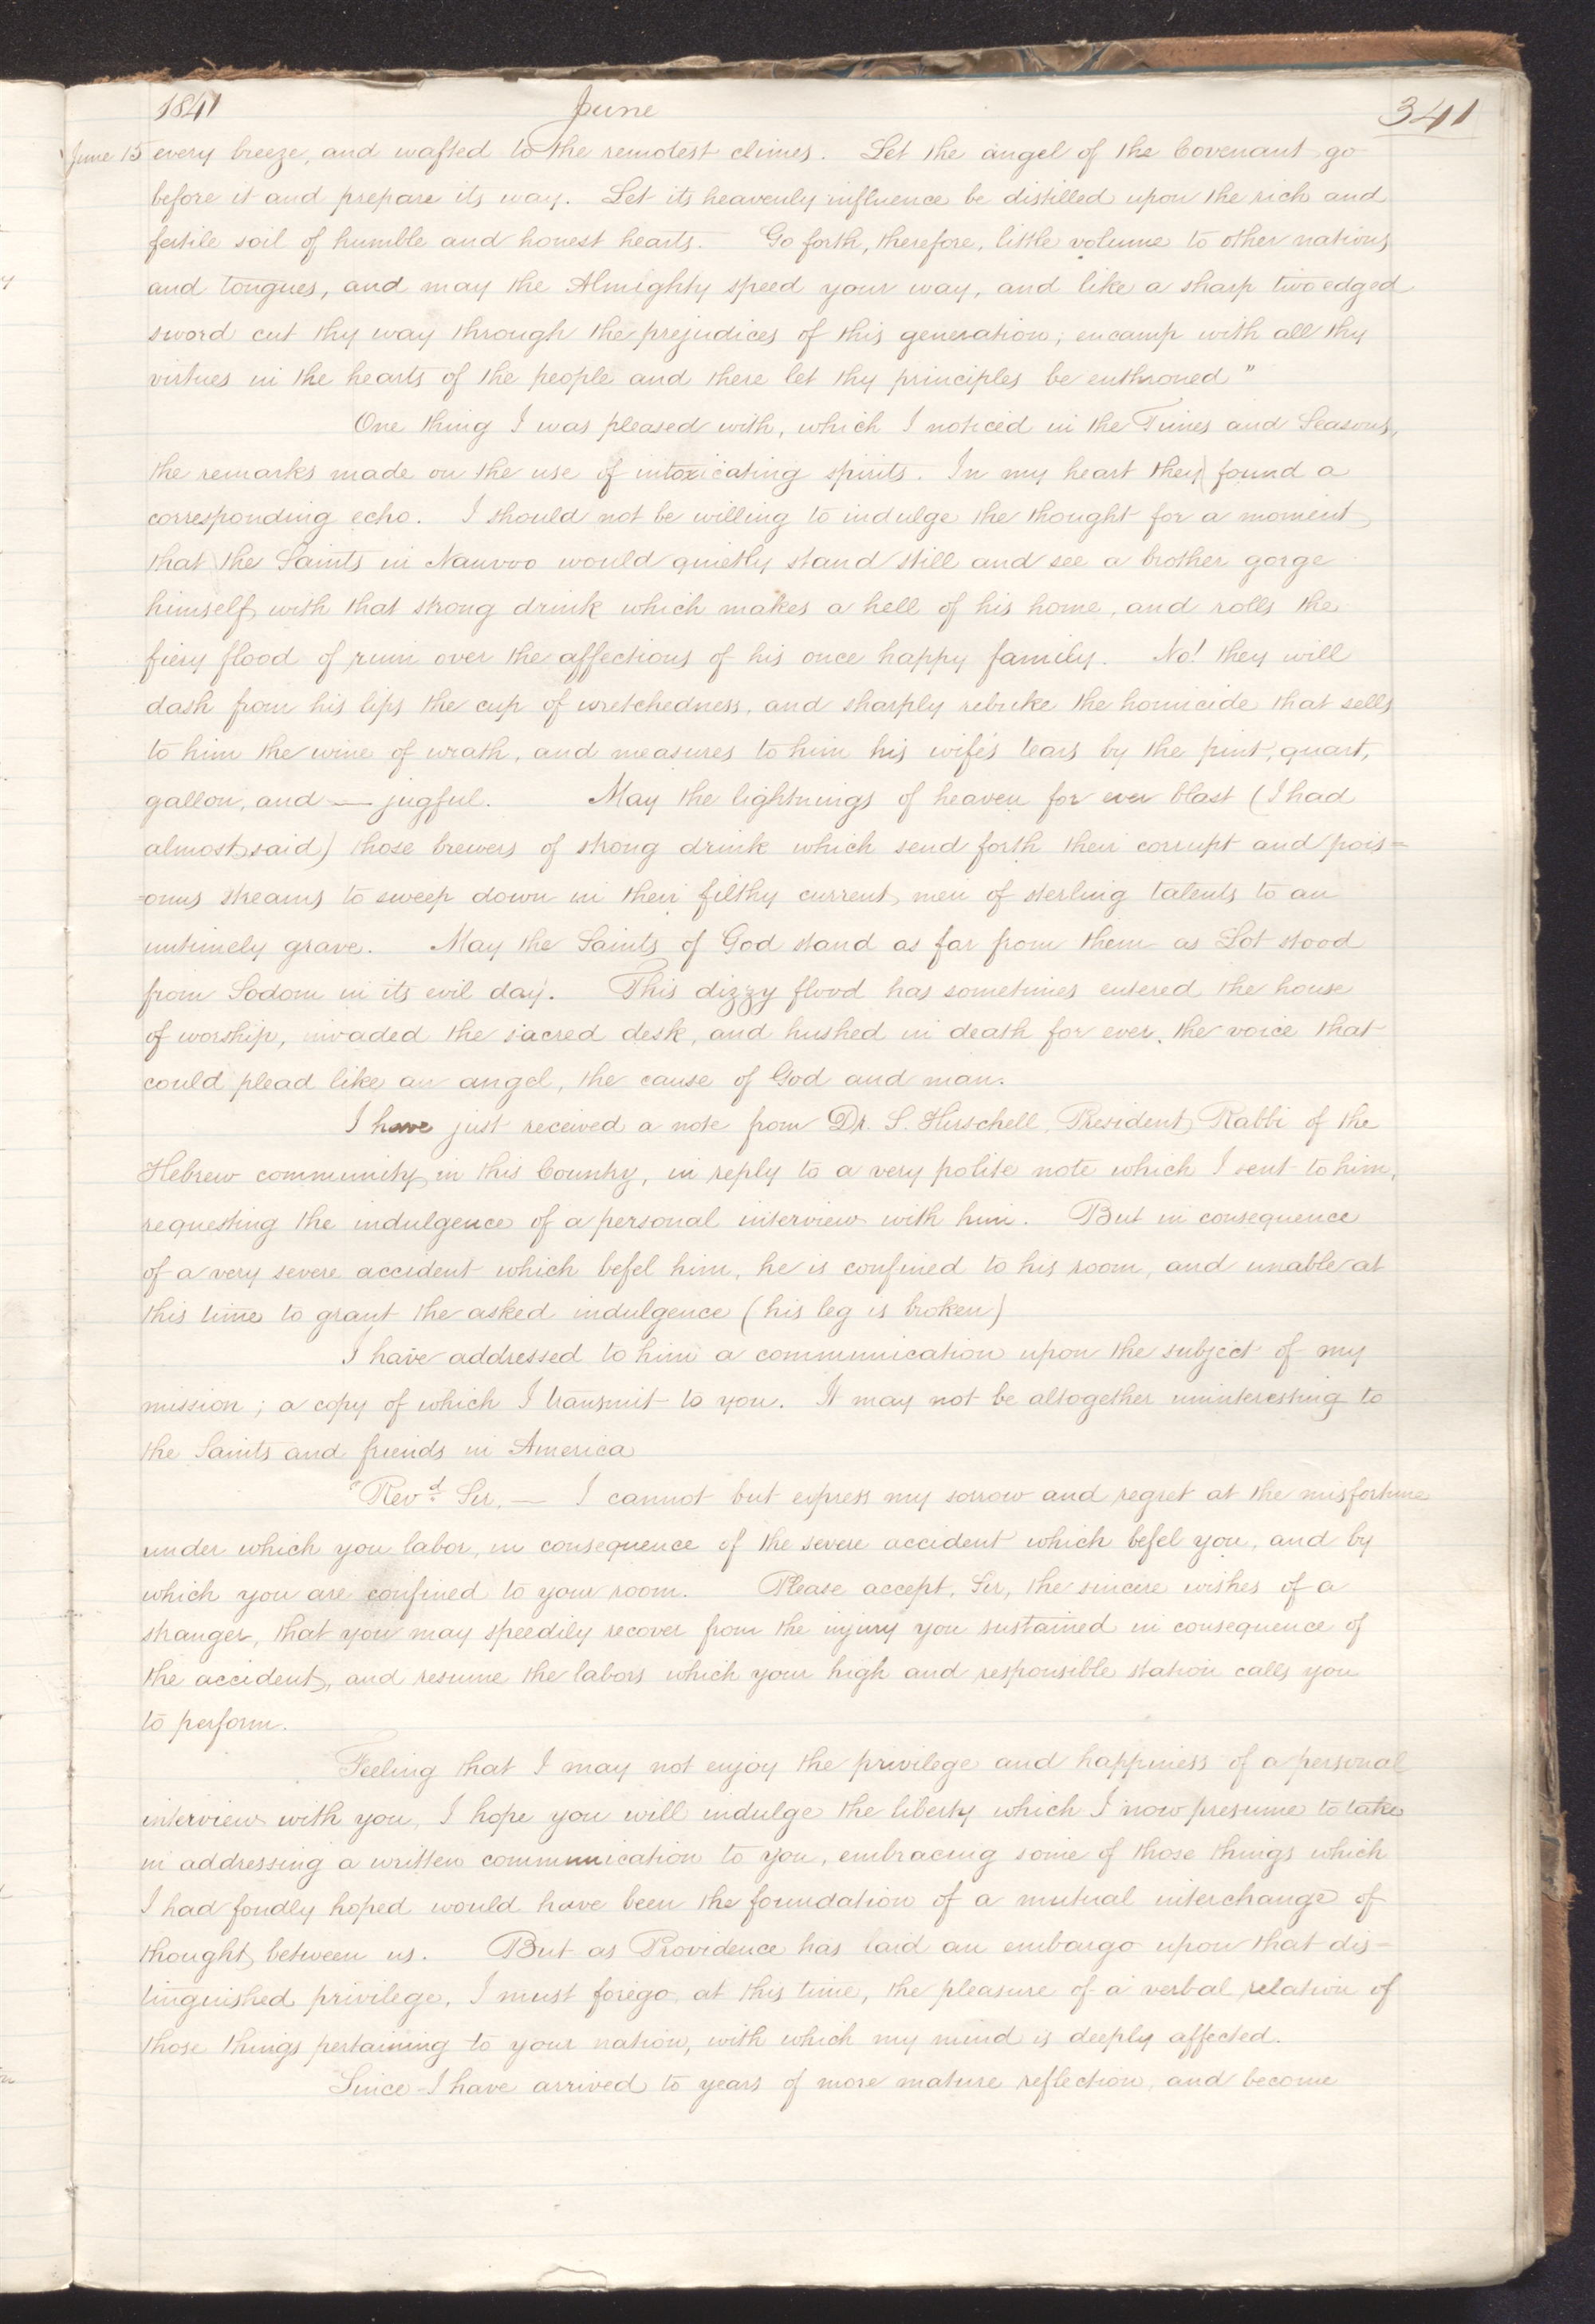 1841 June 341
June 15 every breeze, and wafted to the remotest climes. Let the angel of the Covenant go
before it and prepare its way. Let its heavenly influence be distilled upon the rich and
fertile soil of humble and honest hearts. Go forth, therefore, little volume to other nations
and tongues, and may the Almighty speed your way, and like a sharp two edged
sword cut thy way through the prejudices of this generation; encamp with all thy
virtues in the hearts of the people and there let thy principles be enthroned"
One thing I was pleased with, which I noticed in the Times and Seasons,
the remarks made on the use of intoxicating spirits. In my heart they found a
corresponding echo. I should not be willing to indulge the thought for a moment
that the Saints in Nauvoo would quietly stand still and see a brother gorge
himself with that strong drink which makes a hell of his home, and rolls the
fiery flood of ruin over the affections of his once happy family. No! they will
dash from his lips the cup of wretchedness, and sharply rebuke the homicide that sells
to him the wine of wrath, and measures to him his wife's tears by the pint, quart,
gallon, and — jugful. May the lightnings of heaven for ever blast (I had
almost said) those brewers of strong drink which send forth their corrupt and pois=
=onus streams to sweep down in their filthy current, men of sterling talents to an
untimely grave. May the Saints of God stand as far from them as Lot stood
from Sodom in its evil day. This dizzy flood has sometimes entered the house
of worship, invaded the sacred desk, and hushed in death for ever, the voice that
could plead like an angel, the cause of God and man.
I have just received a note from Dr. S. Hirschell, President Rabbi of the
Hebrew community in this Country, in reply to a very polite note which I sent to him,
requesting the indulgence of a personal interview with him. But in consequence
of a very severe accident which befel him, he is confined to his room, and unable at
this time to grant the asked indulgence (his leg is broken)
I have addressed to him a communication upon the subject of my
mission; a copy of which I transmit to you. It may not be altogether uninteresting to
the Saints and friends in America
"Revd. Sir, — I cannot but express my sorrow and regret at the misfortune
under which you labor, in consequence of the severe accident which befel you, and by
which you are confined to your room. Please accept, Sir, the sincere wishes of a
stranger, that you may speedily recover from the injury you sustained in consequence of
the accident, and resume the labors which your high and responsible station calls you
to perform.
Feeling that I may not enjoy the privilege and happiness of a personal
interview with you, I hope you will indulge the liberty which I now presume to take
in addressing a written communication to you, embracing some of those things which
I had fondly hoped would have been the foundation of a mutual interchange of
thought between us. But as Providence has laid an embargo upon that dis-
tinguished privilege, I must forego at this time, the pleasure of a verbal relation of
those things pertaining to your nation, with which my mind is deeply affected.
Since I have arrived to years of more mature reflection, and become